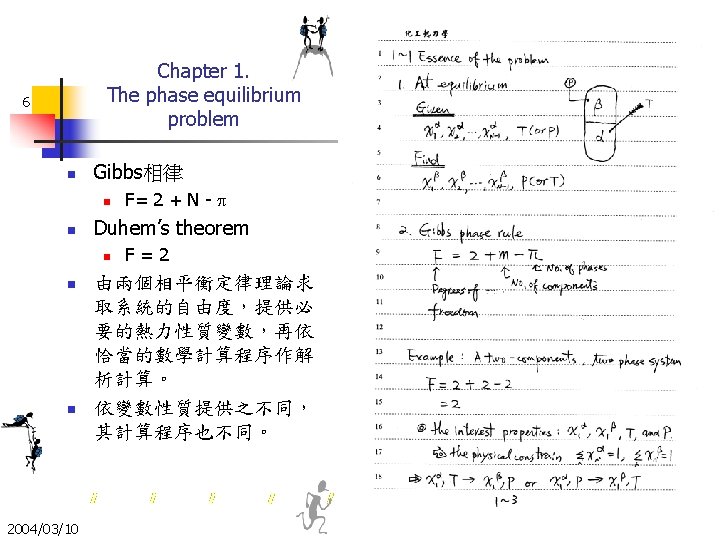 Chapter 1.
The phase equilibrium
problem
6
Gibbs相律
F= 2 + N - π
Duhem's theorem
F = 2
由兩個相平衡定律理論求
取系統的自由度，提供必
要的熱力性質變數，再依
恰當的數學計算程序作解
析計算。
依變數性質提供之不同，
其計算程序也不同。
// // // // //
2004/03/10
化工熱力學
1 1~1 Essence of the problem
2 1. At equilibrium
3 Given
4 x₁^α, x₂^α, ..., x_{m-1}^α, T (or P)
5 Find
6 x₁^β, x₂^β, ..., P (or T)
P
β
α
T
7
8 2. Gibbs phase rule
9 F = 2 + m - π
No. of phases
10 Degrees of ... No. of components
11 freedom
12
13 Example: A two-components, two phase system
14 F = 2 + 2 - 2
15 = 2
16 the interest properties: x₁^α, x₁^β, T, and P.
17 the physical constrain Σx_i^α = 1, Σx_i^β = 1
18 ⇒ x₁^α, T → x₁^β, P or x₁^α, P → x₁^β, T
1~3